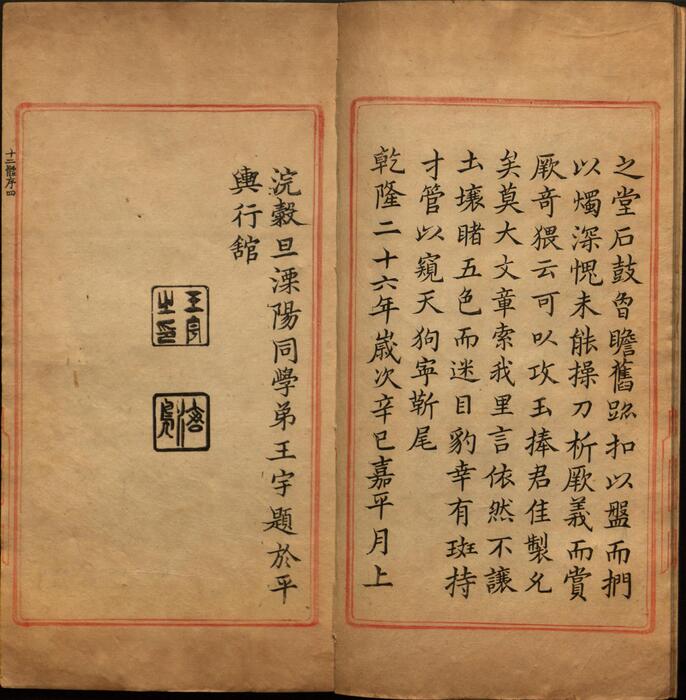 之堂石鼓曾瞻舊跡扣以盤而捫
以燭深愧未能操刀析厥義而賞
厥奇猥云可以攻玉捧君佳製允
矣莫大文章索我里言依然不讓
土壤睹五色而迷目豹幸有斑持
才管以窺天狗寧靳尾
乾隆二十六年歲次辛巳嘉平月上
浣穀旦溧陽同學弟王宇題於平
輿行舘
王宇
之印
十二體序四